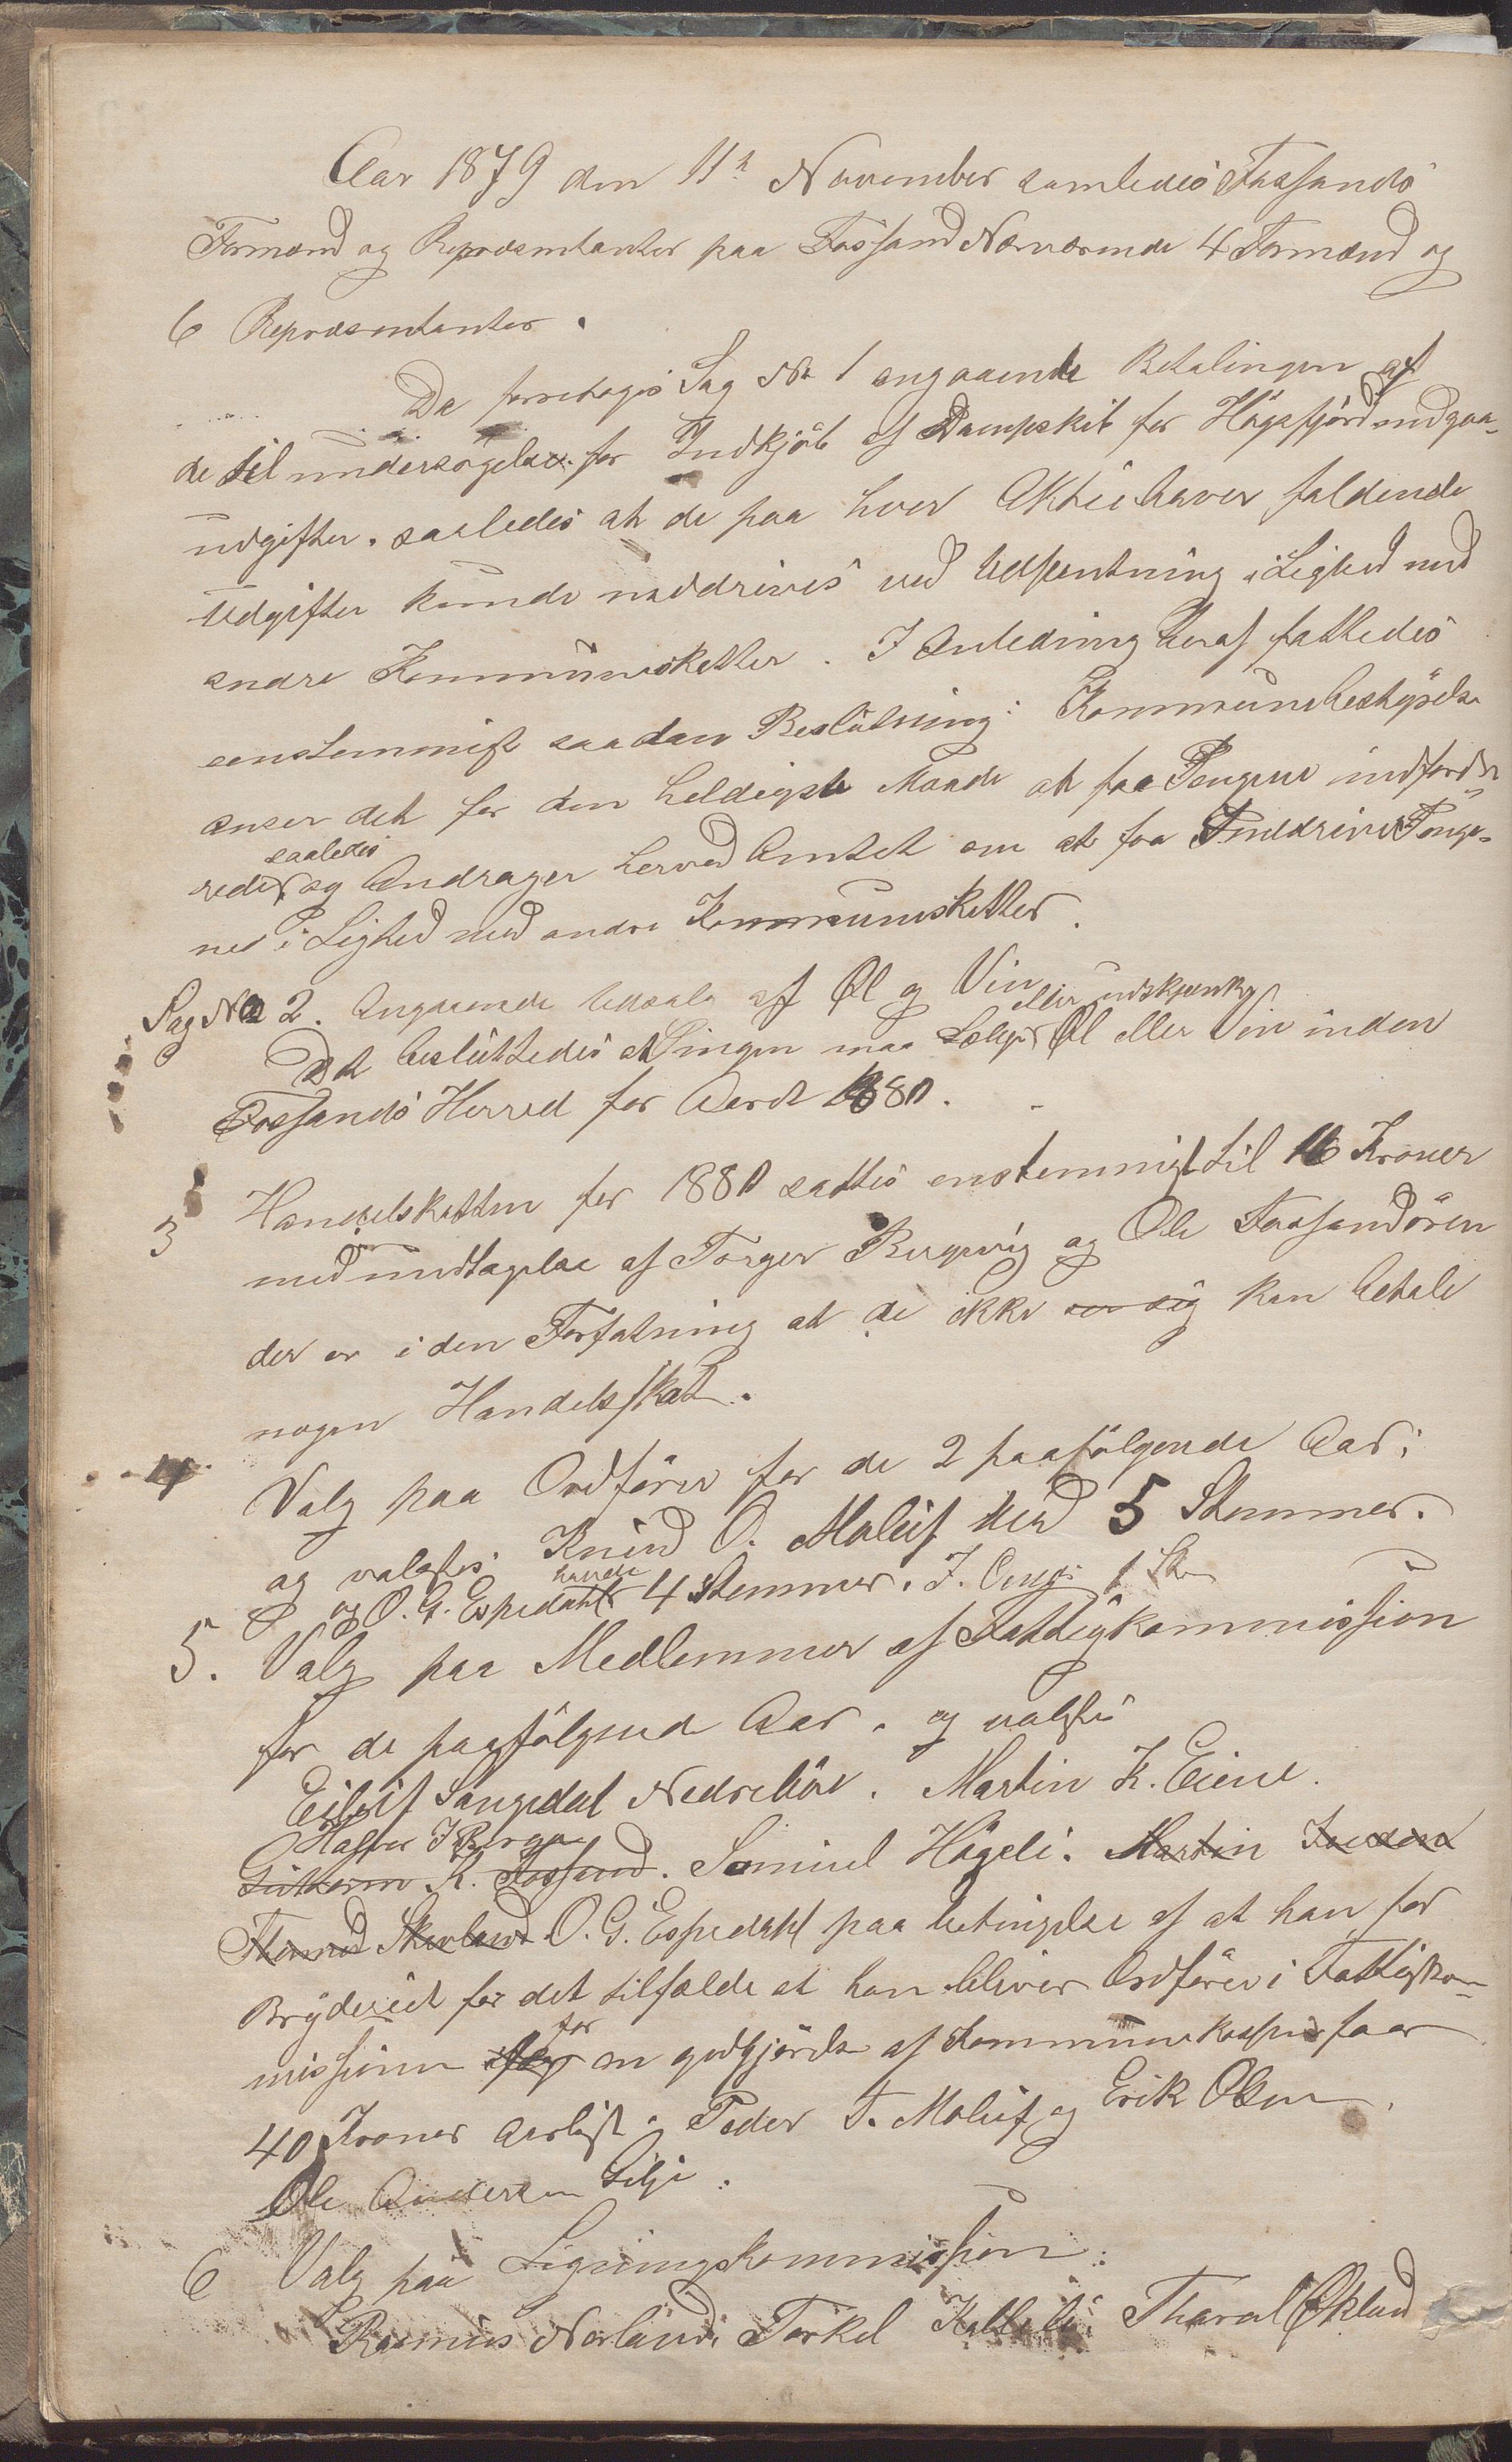 Aar 1879 den 11te November samledes Fossands
Formænd og Repræsentanter paa Fossand Nærværende 4 Formænd og
6 Repræsentanter.
Da foretoges Sag No 1 angaaende Betalingen af
de til undersøgelse for Indkjøb af Dampskib for Høgsfjord indgaa-
udgifter. saaledes at de paa hver Aktiehaver faldende
Udgifter kunde inddrives ved Udpantning i Lighed med
andre Kommuneskatter. I Anledning heraf fattedes
eenstemmigt saadan Beslutning: Kommunebestyrelse
anser det for den heldigste Maade at faa Pengene indford-
saaledes
rede og Andrager herved Amtet om at faa Inddrive Penge-
ne i Lighed med andre Kommuneskatter.
Sag No 2. Angaaende Udsalg af Øl og Vin
eller udskjænke
Det besluttedes at Ingen maa Sælge Øl eller Vin inden
Fossands Herred for Aaret 1880.
3 Handelskatten for 1880 sattes enstemmigt til 16 Kroner
med undtagelse af Torger Bergevig og Ole Fossandøren
der er i den Forfatning at de ikke ser sig kan betale
nogen Handelsskat.
4 Valg paa Ordfører for de 2 paafølgende Aar:
og valgtes. Knud O. Maleif med 5 Stemmer.
havde
og O. G. Espedahl 4 Stemmer. J. 1 St
5. Valg paa Medlemmer af Fattigkommission
for de paafølgend Aar. og valgtes
Eileif Sangedal Nedrebøe. Martin K. Eiene.
Halvor J Berge
Guttorm K. Fossand. Samuel Høgeli. Martin
O. G. Espedahl paa betingelse af at han for
Bryderiet for det tilfælde at han bliver Ordfører i Fattigkom-
for
missionen en godtgjørelse af Kommunekassen faar
40 Kroner aarligt. Peder T. Maleif og Erik Olsen.
Ole Andersen Lilje.
6 Valg paa Ligningskommission:
Rasmus Norland, Torkel Thoral Økland